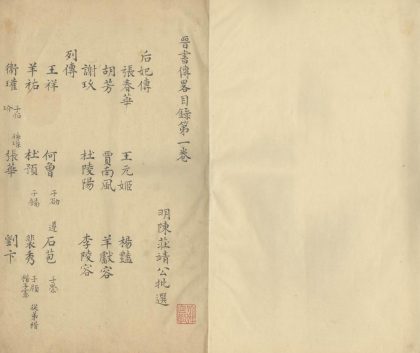 晉書傳畧目錄第一卷
明陳莊靖公批選
后妃傳
張春華 王元姬 楊豔
胡芳 賈南風 羊獻容
謝玖 杜陵陽 李陵容
列傳
王祥 何曾 子劭 遵 石苞 子崇
羊祜 杜預 子錫 裴秀 子頠 從弟楷 楷子憲
衛瓘 子恒 孫璪 玠 張華 劉卞